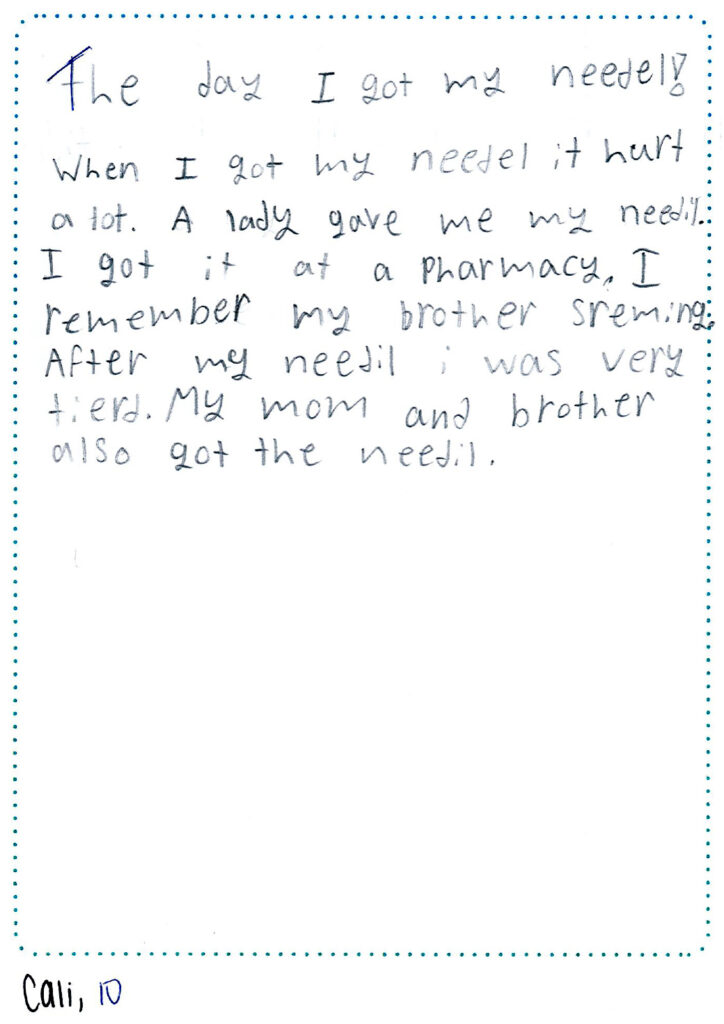 The day I got my needel!
When I got my needel it hurt
a lot. A lady gave me my needil.
I got it at a pharmacy. I
remember my brother sreming.
After my needil i was very
tierd. My mom and brother
also got the needil.
Cali, 10